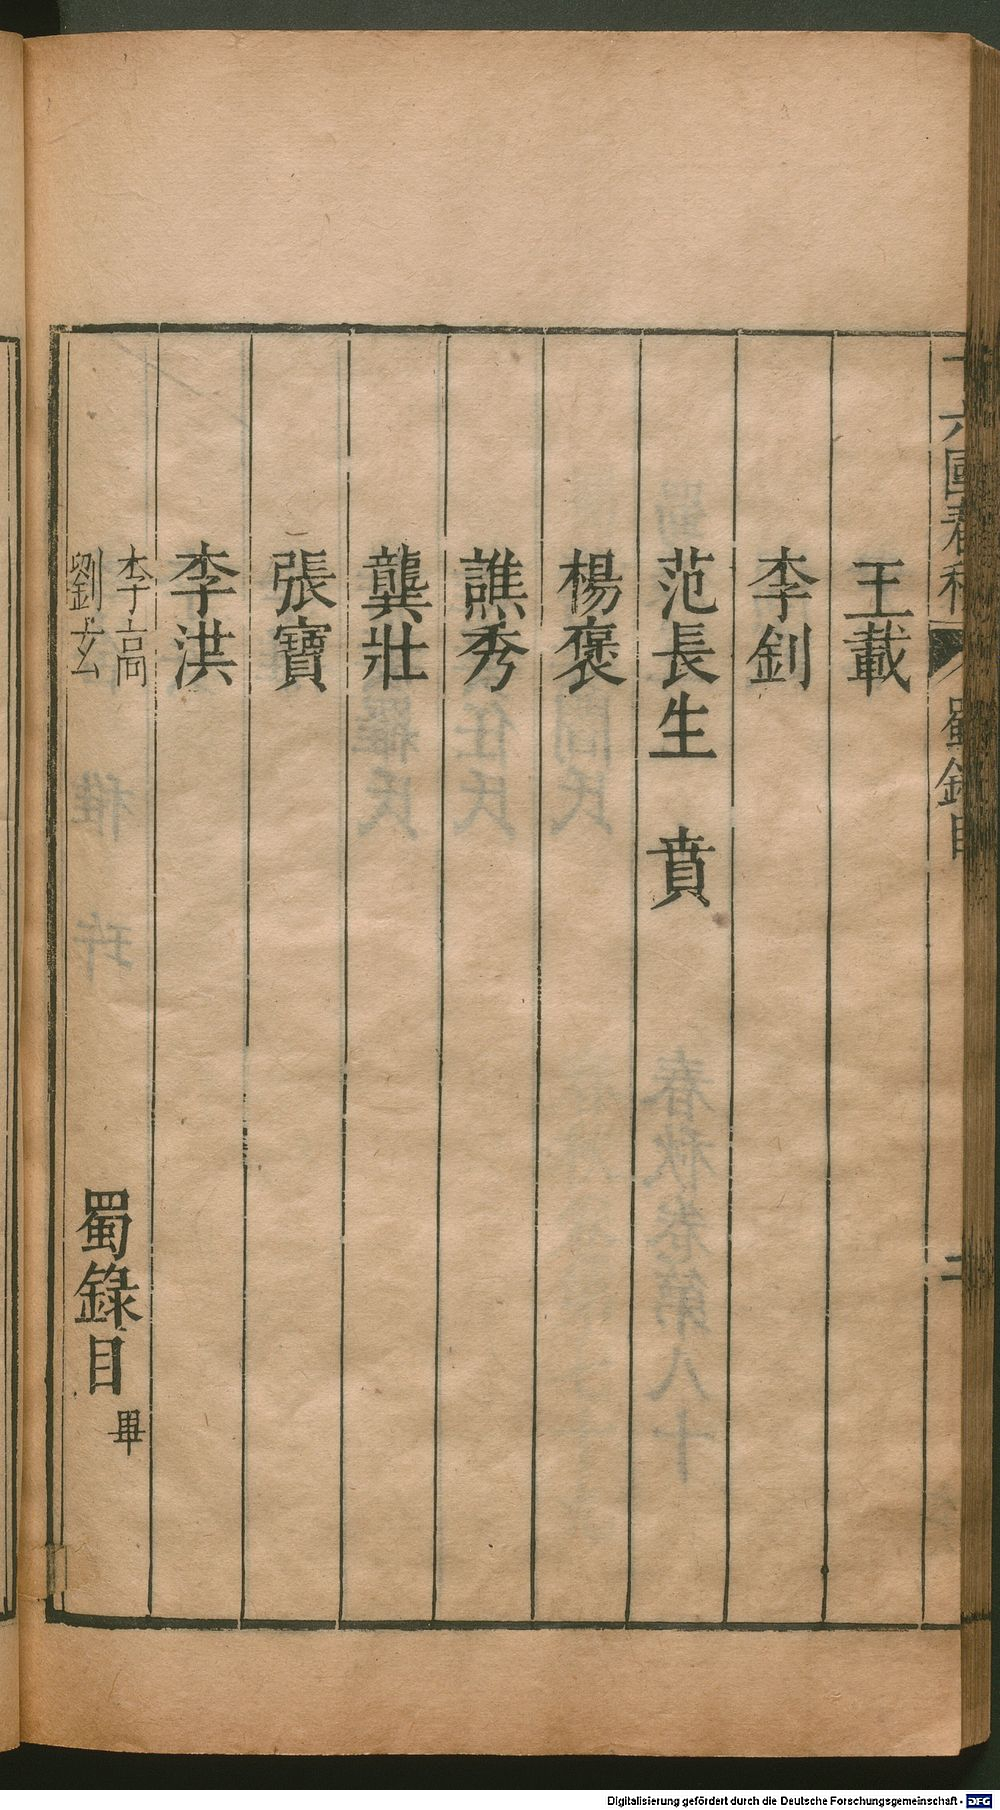 十六國春秋 蜀錄目 二
王載
李釗
范長生 賁
楊褒
譙秀
龔壯
張寶
李洪
李高
劉玄
蜀錄目畢
Digitalisierung gefördert durch die Deutsche Forschungsgemeinschaft - DFG